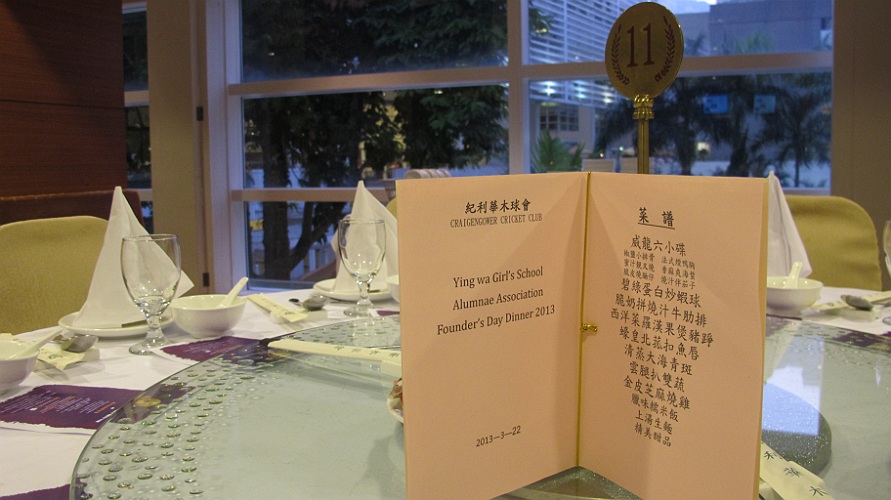 11
紀利華木球會
CRAIGENGOWER CRICKET CLUB
Ying wa Girl's School
Alumnae Association
Founder's Day Dinner 2013
2013—3—22
菜 譜
威龍六小碟
椒鹽小排骨 法式燻鴨胸
蜜汁靚叉燒 香麻爽海蜇
脆皮燒腩仔 燒汁伴茄子
碧綠蛋白炒蝦球
脆奶拼燒汁牛肋排
西洋菜羅漢果煲豬踭
蠔皇北菰扣魚唇
清蒸大海青斑
雲腿扒雙蔬
金皮芝麻燒雞
臘味糯米飯
上湯生麵
精美甜品